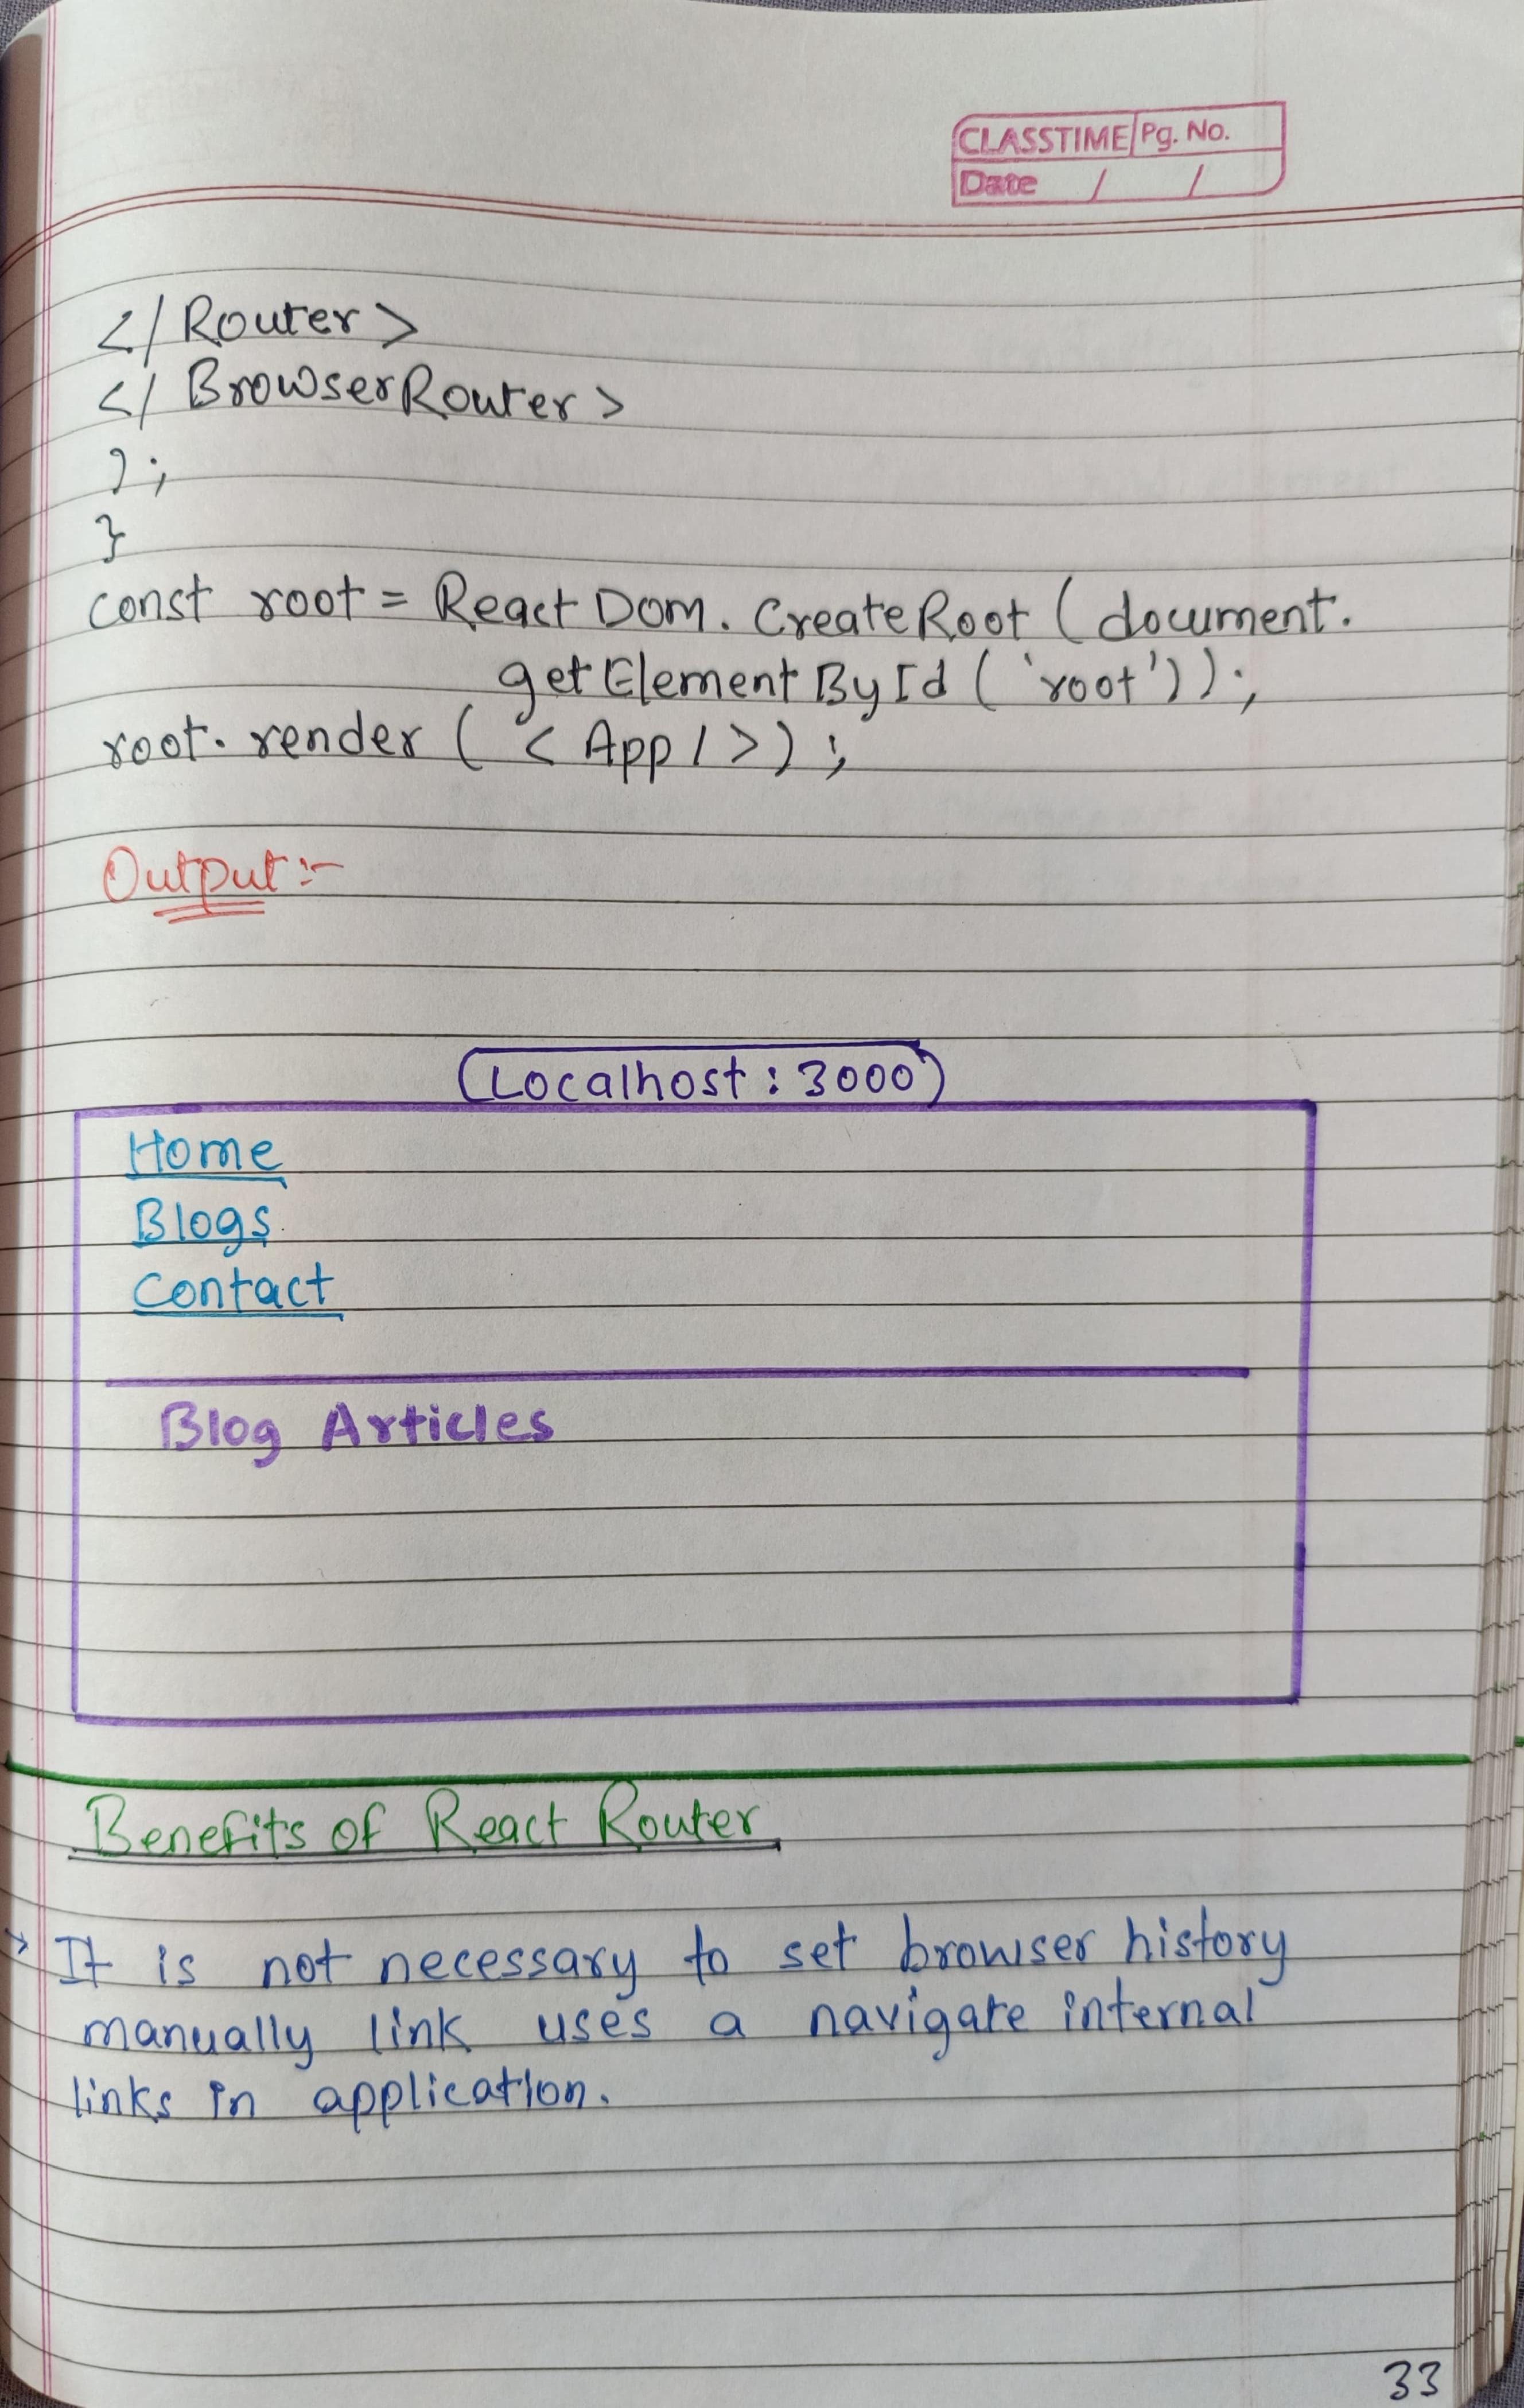 CLASSTIME Pg. No.
Date / /
</ Router>
</ BrowserRouter>
);
}
const root = React Dom. CreateRoot (document.
getElementById ('root'));
root. render ( < App / > ) ;
Output :-
Localhost : 3000
Home
Blogs
Contact
Blog Articles
Benefits of React Router
→ It is not necessary to set browser history
manually link uses a navigate internal
links in application.
33